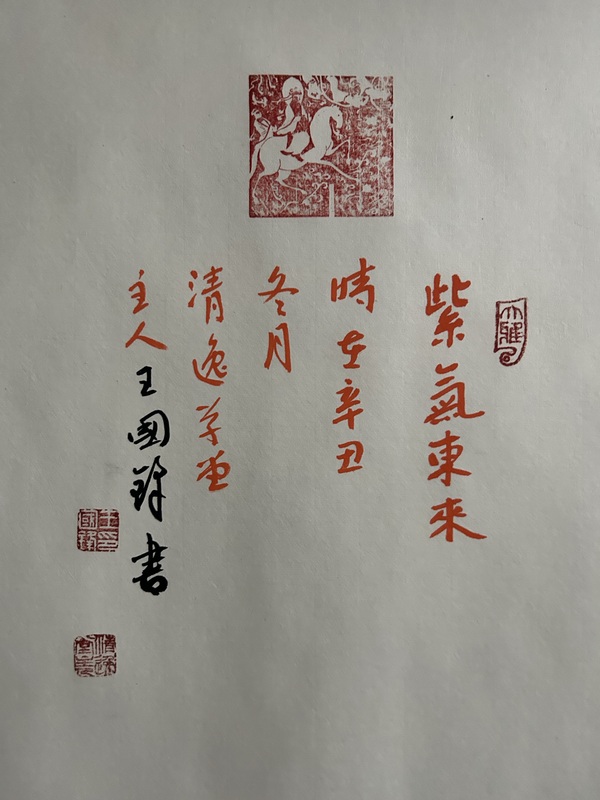 紫氣東來
時在辛丑
冬月
清逸草堂
主人王國鋒書